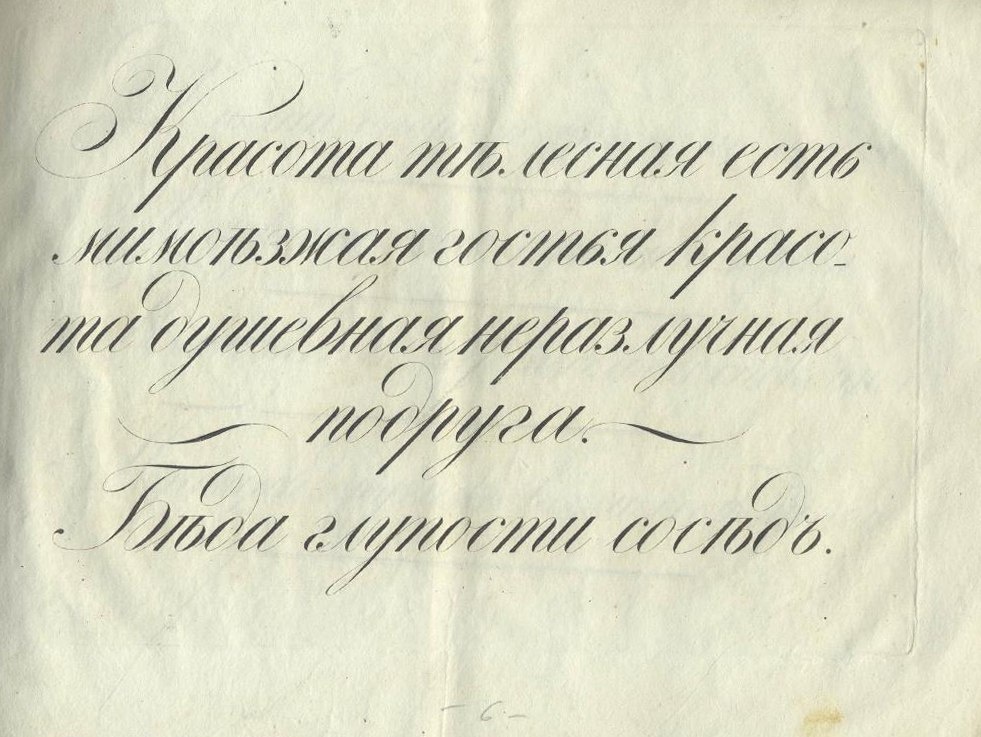 Красота тѣлесная есть
мимоѣзжая гостья красо-
та душевная неразлучная
подруга.
Бѣда глупости сосѣдъ.
- 6 -